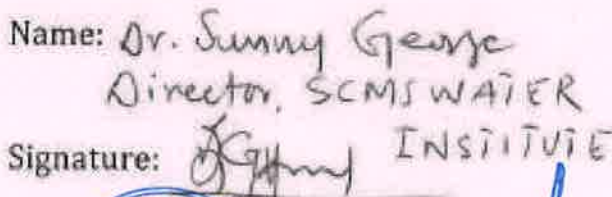 Name: Dr. Sunny George
Director, SCMS WATER
INSTITUTE
Signature: